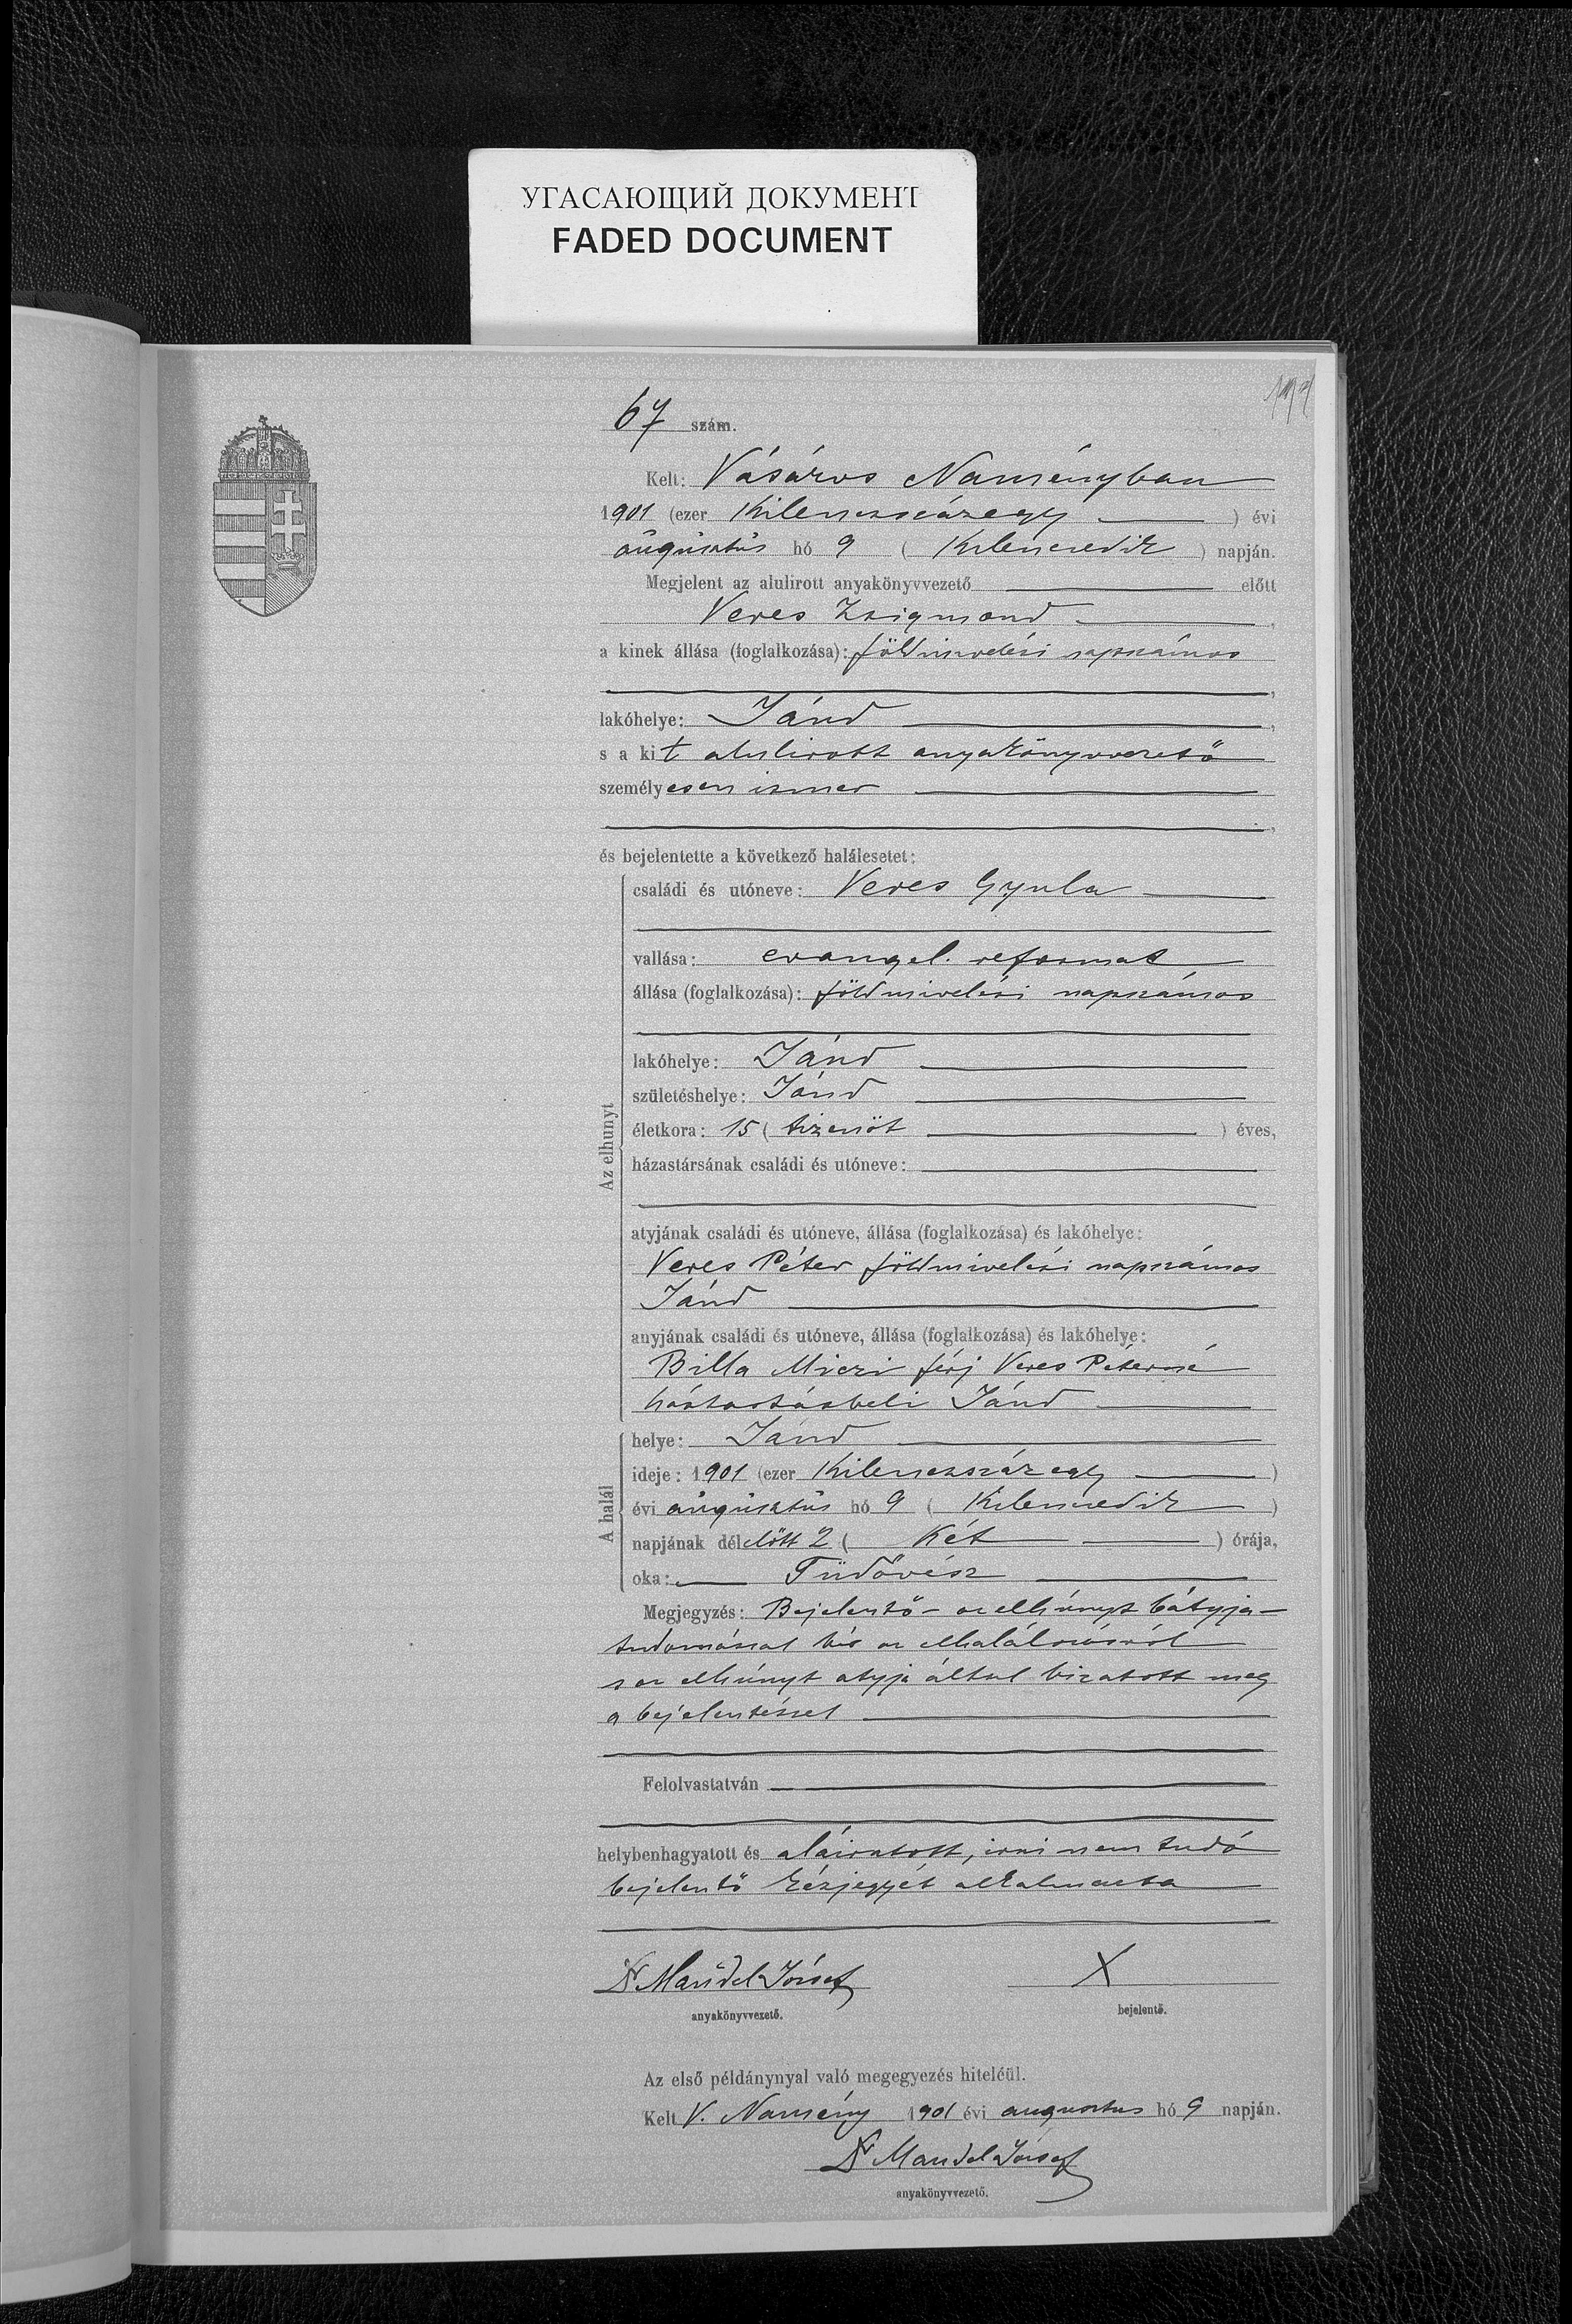 УГАСАЮЩИЙ ДОКУМЕНТ
FADED DOCUMENT
67 szám.
Kelt: Vásáros Naményban
1901 (ezer Kilenczszázegy) évi
augusztus hó 9 (Kilenczedik) napján.
Megjelent az alulirott anyakönyvvezető előtt
Veres Zsigmond,
a kinek állása (foglalkozása): földmivelési napszámos
,
lakóhelye: Jánd,
s a kit alulirott anyakönyvvezető
személyesen ismer
,
és bejelentette a következő halálesetet:
Az elhunyt
családi és utóneve: Veres Gyula
vallása: evangel. reformat
állása (foglalkozása): földmivelési napszámos
lakóhelye: Jánd
születéshelye: Jánd
életkora: 15 (tizenöt) éves,
házastársának családi és utóneve:
atyjának családi és utóneve, állása (foglalkozása) és lakóhelye:
Veres Péter földmivelési napszámos
Jánd
anyjának családi és utóneve, állása (foglalkozása) és lakóhelye:
Billa Miczi férj Veres Péterné
háztartásbeli Jánd
A halál
helye: Jánd
ideje: 1901 (ezer Kilenczszázegy)
évi augusztus hó 9 (Kilenczedik)
napjának délelőtt 2 (Két) órája,
oka: Tüdővész
Megjegyzés: Bejelentő - az elhunyt bátyja -
tudomással bir az elhalálozásról
s az elhunyt atyja által bizatott meg
a bejelentéssel
Felolvastatván
helybenhagyatott és aláiratott, irni nem tudó
bejelentő kézjegyét alkalmazta
Dr Mandel József X
anyakönyvvezető. bejelentő.
Az első példánynyal való megegyezés hiteléül.
Kelt V. Namény 1901 évi augusztus hó 9 napján.
Dr Mandel József
anyakönyvvezető.